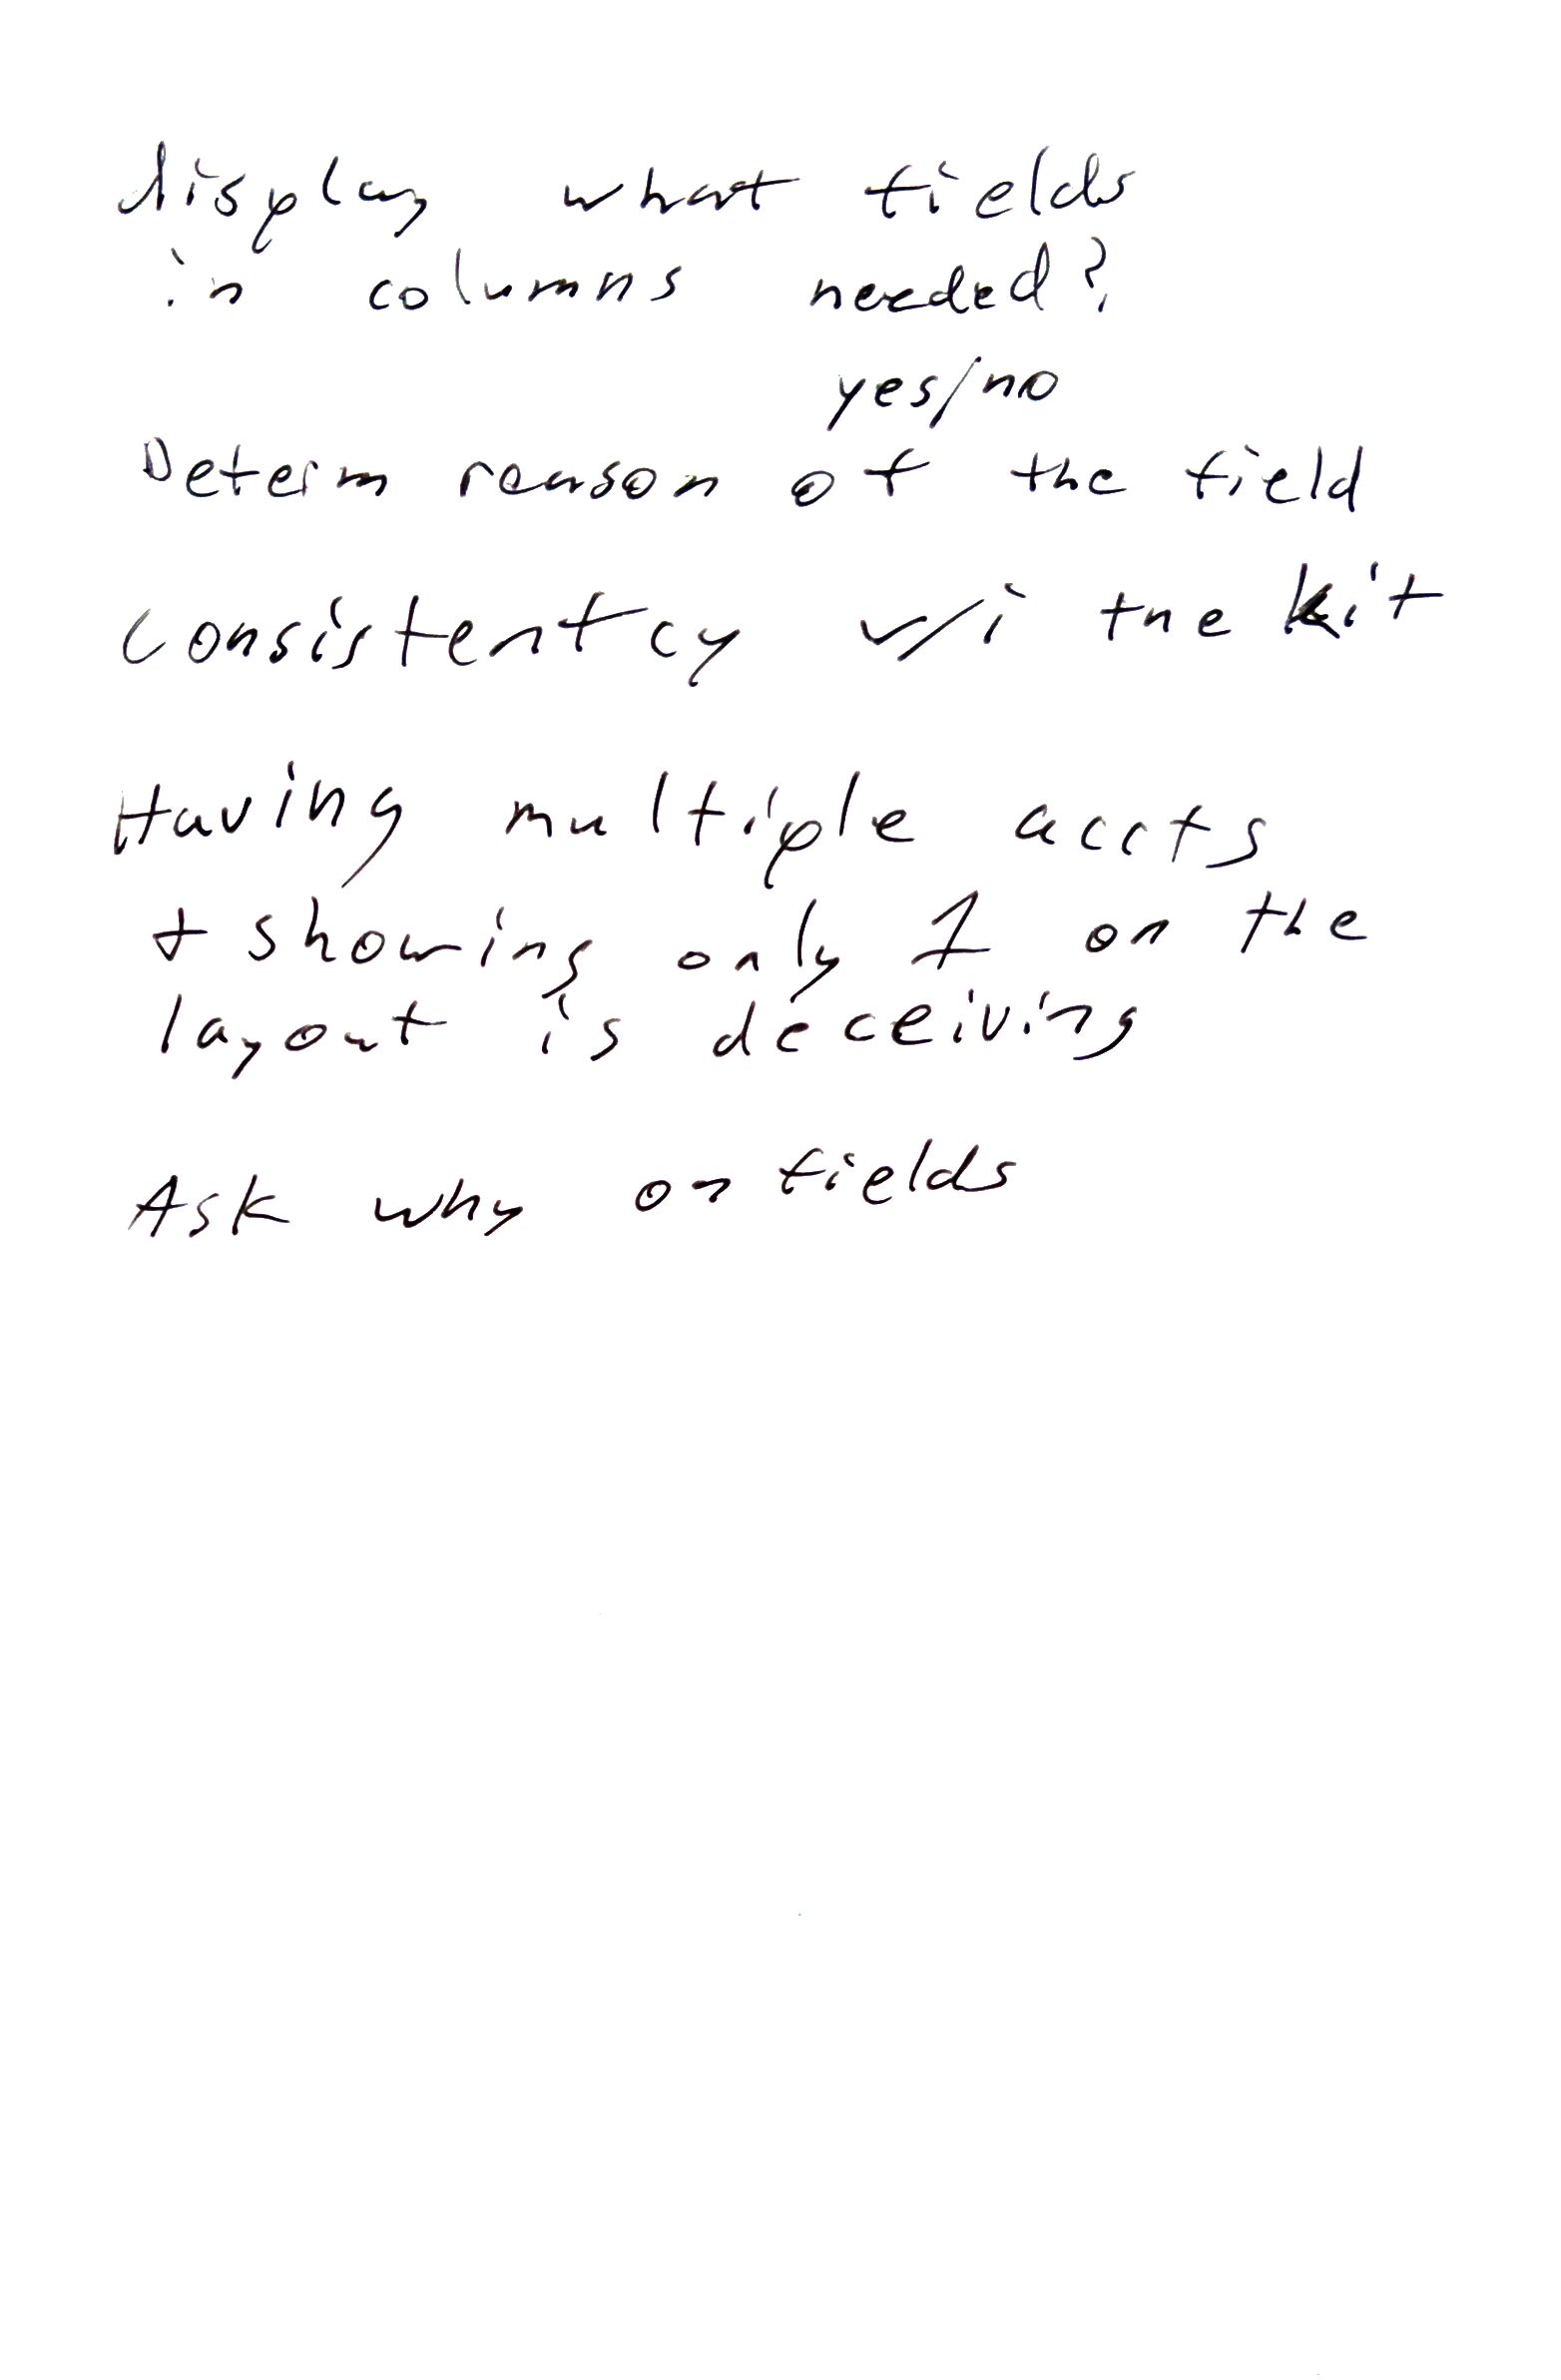 display what fields
in columns needed?
yes/no
Determ reason of the field
Consistentcy w/i the kit
Having multiple accts
+ showing only 1 on the
layout is deceiving
Ask why on fields